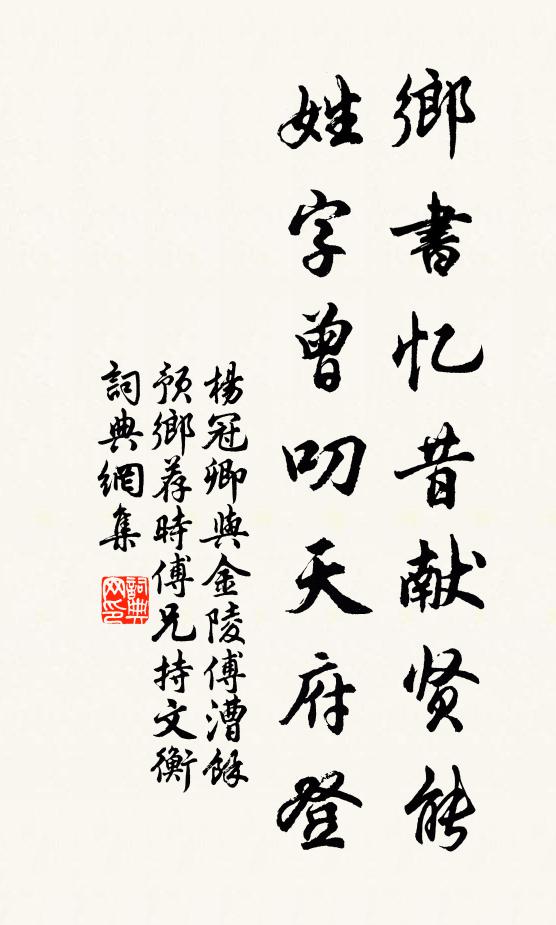 鄉書忆昔献贤能
姓字曾叨天府登
楊冠卿與金陵傅漕餘
預鄉荐時傅兄持文衡
詞典網集
詞典
网印